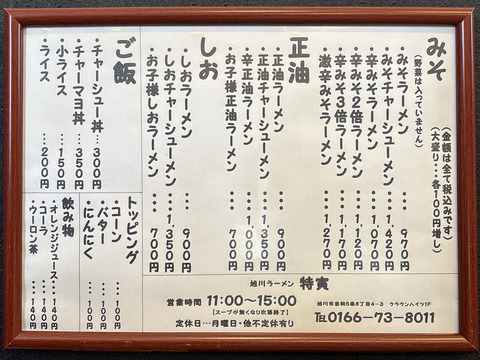 みそ
(金額は全て税込みです)
(大盛り・・・各100円増し)
(野菜は入っていません)
・みそラーメン・・・970円
・みそチャーシューメン・・・1,420円
・辛みそラーメン・・・1,070円
・辛みそ2倍ラーメン・・・
・辛みそ3倍ラーメン・・・1,170円
・激辛みそラーメン・・・1,270円
正油
・正油ラーメン・・・900円
・正油チャーシューメン・・・1,350円
・辛正油ラーメン・・・1,000円
・お子様正油ラーメン・・・700円
しお
・しおラーメン・・・900円
・しおチャーシューメン・・・1,350円
・お子様しおラーメン・・・700円
ご飯
・チャーシュー丼・・・300円
・チャーマヨ丼・・・350円
・小ライス・・・150円
・ライス・・・200円
トッピング
・コーン・・・100円
・バター・・・100円
・にんにく・・・100円
飲み物
・オレンジジュース・・・140円
・コーラ・・・140円
・ウーロン茶・・・140円
旭川ラーメン 特寅
営業時間 11:00~15:00
【スープが無くなり次第終了】
定休日…月曜日・他不定休有り
TEL0166-73-8011